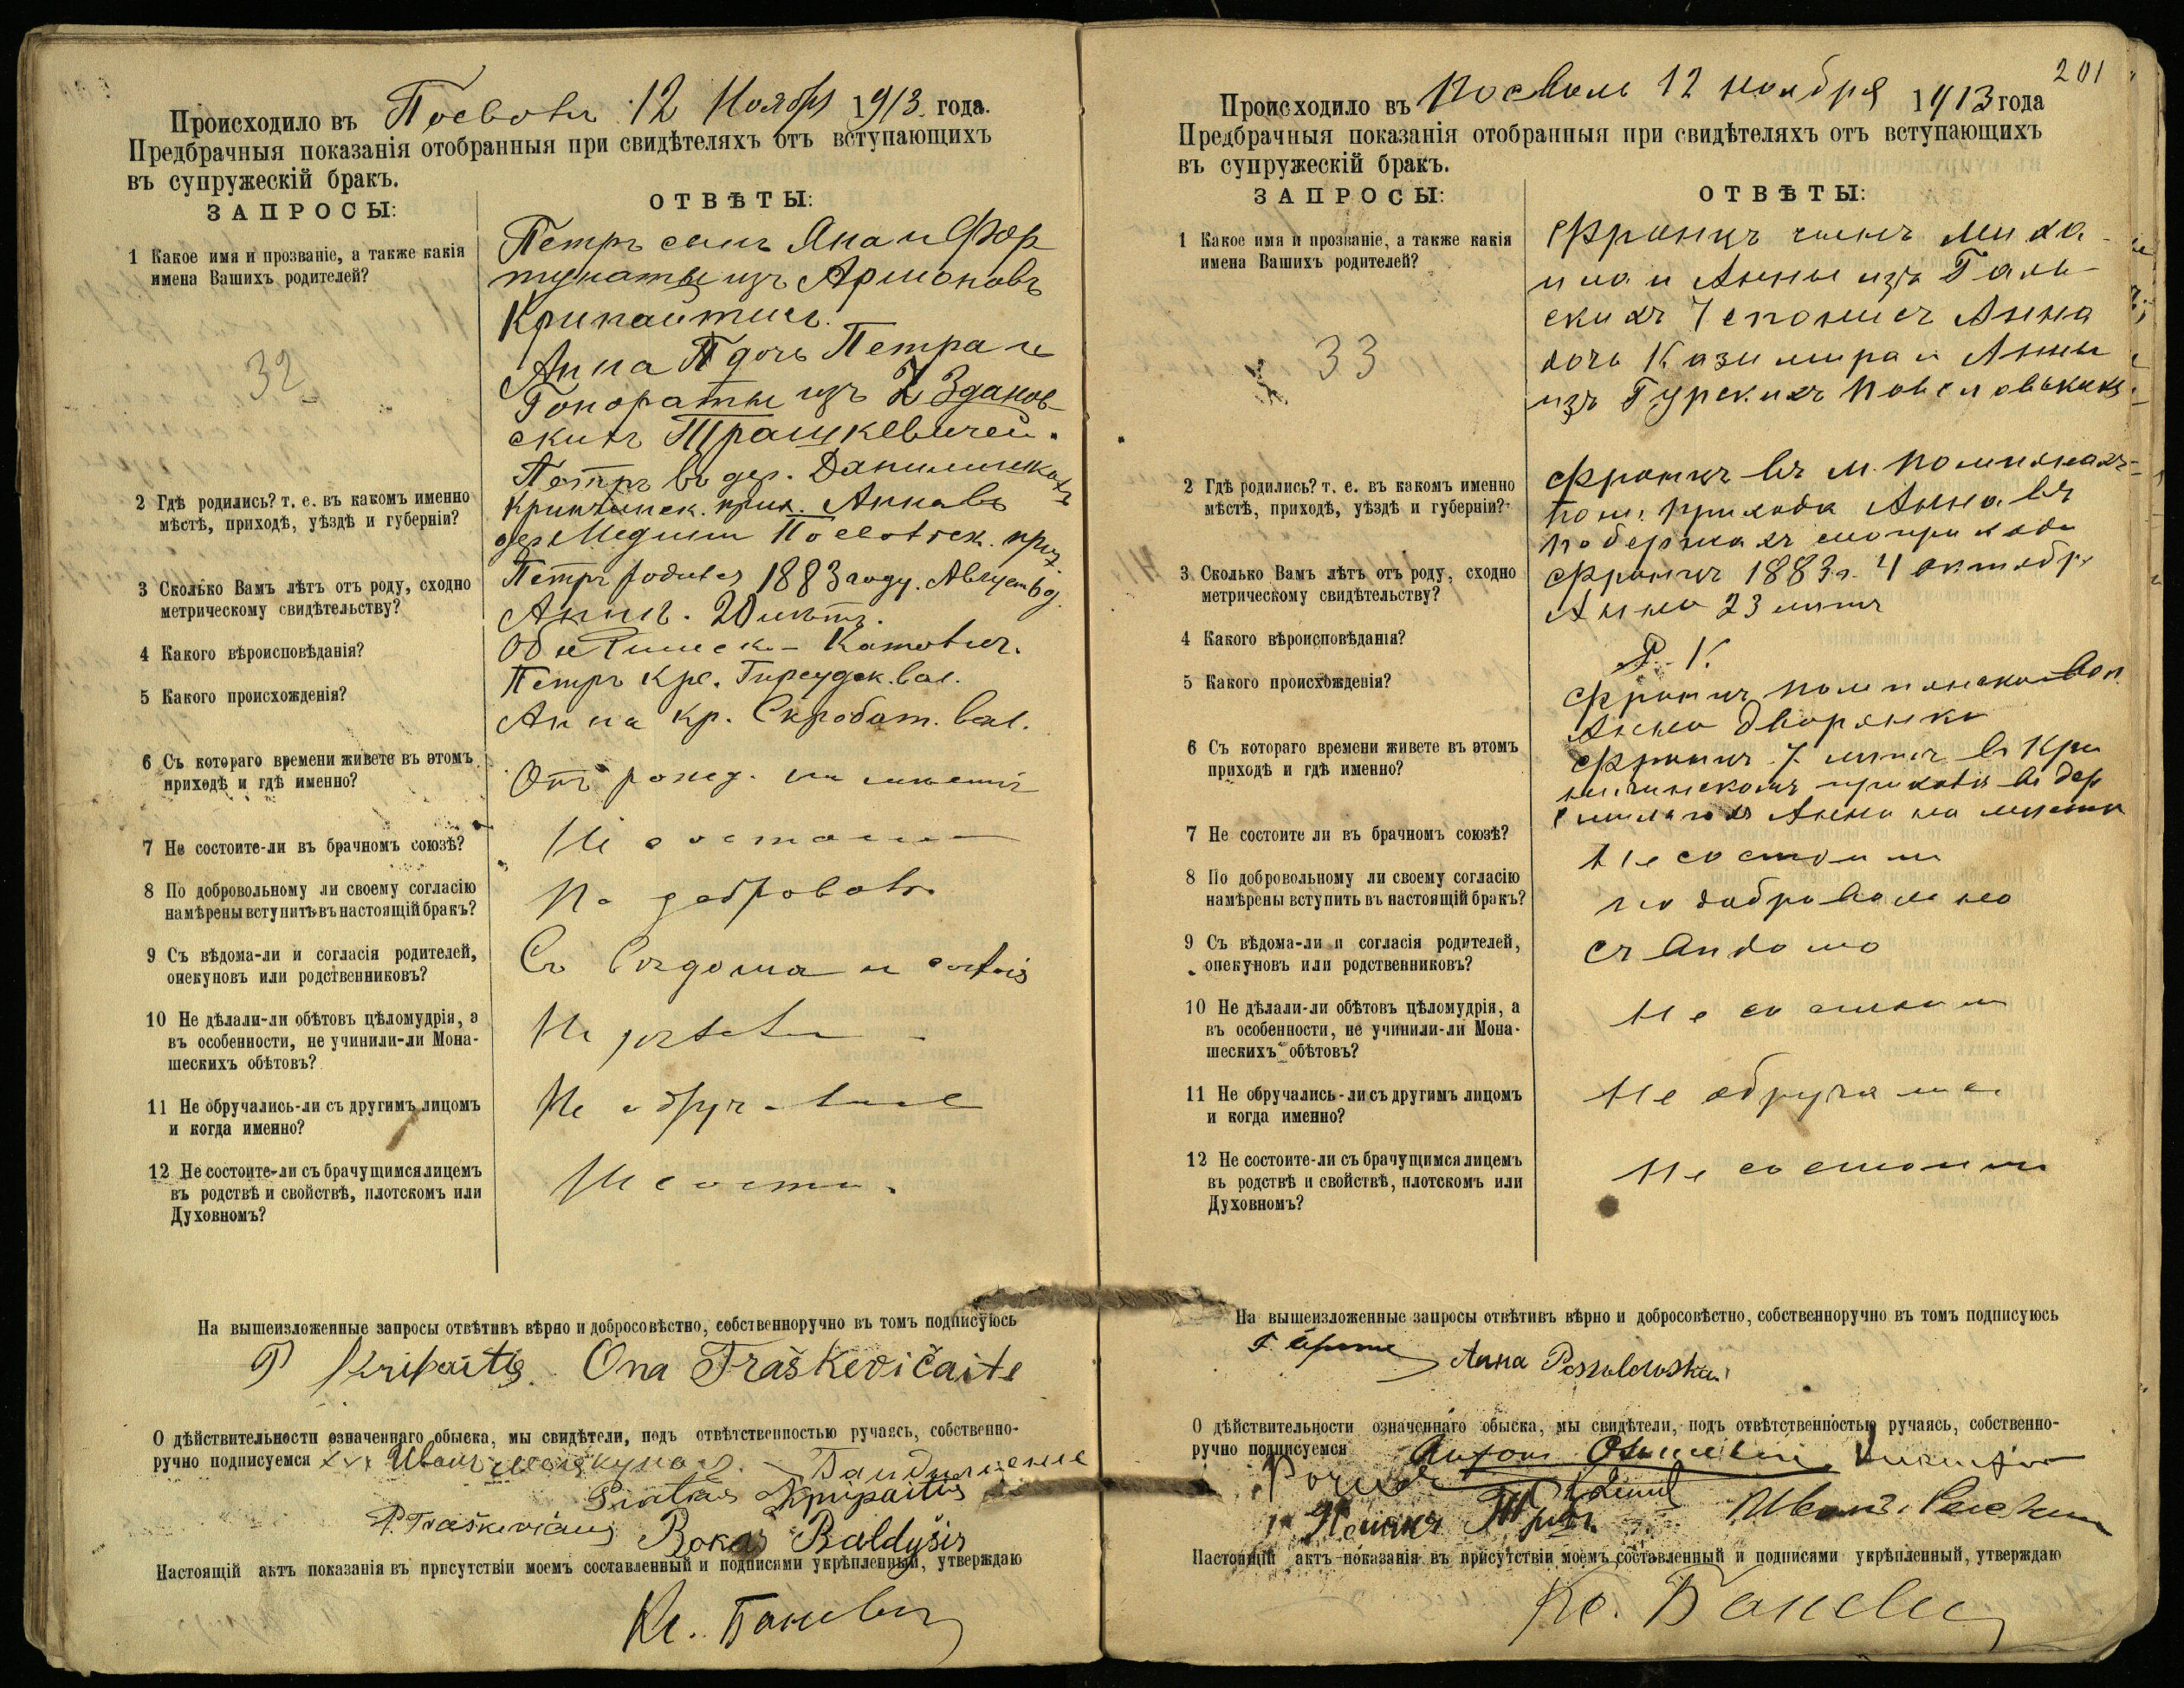 Происходило въ Посволь 12 Ноября 1913. года.
Предбрачныя показанія отобранныя при свидѣтеляхъ отъ вступающихъ
въ супружескій бракъ.
ЗАПРОСЫ:
ОТВѢТЫ:
1 Какое имя и прозваніе, а также какія
имена Вашихъ родителей?
32
Петръ сынъ Яна и Фор
тунаты изъ Армоновъ
Крипайтисъ.
Анна П дочь Петра и
Гонораты изъ Здановскихъ
Трашкевичей.
2 Гдѣ родились? т. е. въ какомъ именно
мѣстѣ, приходѣ, уѣздѣ и губерніи?
Петръ въ дер. Данилишкахъ
Кринчинск. прих. Анна въ
дер. Посвольск. прих.
3 Сколько Вамъ лѣтъ отъ роду, сходно
метрическому свидѣтельству?
Петръ родился 1883 году. Август 6 д.
Анна. 20 лѣтъ.
4 Какого вѣроисповѣданія?
Обе Римско-Католич.
5 Какого происхожденія?
Петръ кре. Гиреудск. вол.
Анна кр. Скробот. вол.
6 Съ котораго времени живете въ этомъ
приходѣ и гдѣ именно?
Отъ рожд. на мѣстѣ
7 Не состоите-ли въ брачномъ союзѣ?
Не состоимъ
8 По добровольному ли своему согласію
намѣрены вступить въ настоящій бракъ?
По доброволь.
9 Съ вѣдома-ли и согласія родителей,
опекуновъ или родственниковъ?
Съ вѣдома и
10 Не дѣлали-ли обѣтовъ цѣломудрія, а
въ особенности, не учинили-ли Мона-
шескихъ обѣтовъ?
Не дѣлали
11 Не обручались-ли съ другимъ лицомъ
и когда именно?
Не обручались
12 Не состоите-ли съ брачущимся лицемъ
въ родствѣ и свойствѣ, плотскомъ или
Духовномъ?
Не состои.
На вышеизложенные запросы отвѣтивъ вѣрно и добросовѣстно, собственноручно въ томъ подписуюсь
P Kripaitis. Ona Traškevičaite
О дѣйствительности означеннаго обыска, мы свидѣтели, подъ отвѣтственностью ручаясь, собственно-
ручно подписуемся Иванъ
P. Traškevičius Rokas Baldyšis
Настоящій актъ показанія въ присутствіи моемъ составленный и подписями укрѣпленный, утверждаю
Кс. Баневич
201
Происходило въ Посволь 12 ноября 1913 года
Предбрачныя показанія отобранныя при свидѣтеляхъ отъ вступающихъ
въ супружескій бракъ.
ЗАПРОСЫ:
ОТВѢТЫ:
1 Какое имя и прозваніе, а также какія
имена Вашихъ родителей?
33
Францъ сынъ Миха-
ила и Анны изъ Галь-
скихъ Анна
дочь Казимира и Анны
изъ Гурскихъ
2 Гдѣ родились? т. е. въ какомъ именно
мѣстѣ, приходѣ, уѣздѣ и губерніи?
Францъ въ м. Помпянахъ
пом. прихода Анна въ
3 Сколько Вамъ лѣтъ отъ роду, сходно
метрическому свидѣтельству?
Францъ 1883 г. 4 октябр.
Анна 23 лѣтъ
4 Какого вѣроисповѣданія?
Р. К.
5 Какого происхожденія?
Францъ Помпянской вол.
Анна дворянка
6 Съ котораго времени живете въ этомъ
приходѣ и гдѣ именно?
Францъ 7 лѣтъ въ Кри
нчинскомъ приходѣ въ дер
Анна на мѣстѣ
7 Не состоите ли въ брачномъ союзѣ?
Не состоимъ
8 По добровольному ли своему согласію
намѣрены вступить въ настоящій бракъ?
по добровольно
9 Съ вѣдома-ли и согласія родителей,
опекуновъ или родственниковъ?
съ вѣдома
10 Не дѣлали-ли обѣтовъ цѣломудрія, а
въ особенности, не учинили-ли Мона-
шескихъ обѣтовъ?
Не состоим
11 Не обручались-ли съ другимъ лицомъ
и когда именно?
Не обручались
12 Не состоите-ли съ брачущимся лицемъ
въ родствѣ и свойствѣ, плотскомъ или
Духовномъ?
Не состоимъ
На вышеизложенные запросы отвѣтивъ вѣрно и добросовѣстно, собственноручно въ томъ подписуюсь
Анна
О дѣйствительности означеннаго обыска, мы свидѣтели, подъ отвѣтственностью ручаясь, собственно-
ручно подписуемся
Настоящій актъ показанія въ присутствіи моемъ составленный и подписями укрѣпленный, утверждаю
Кс. Баневич